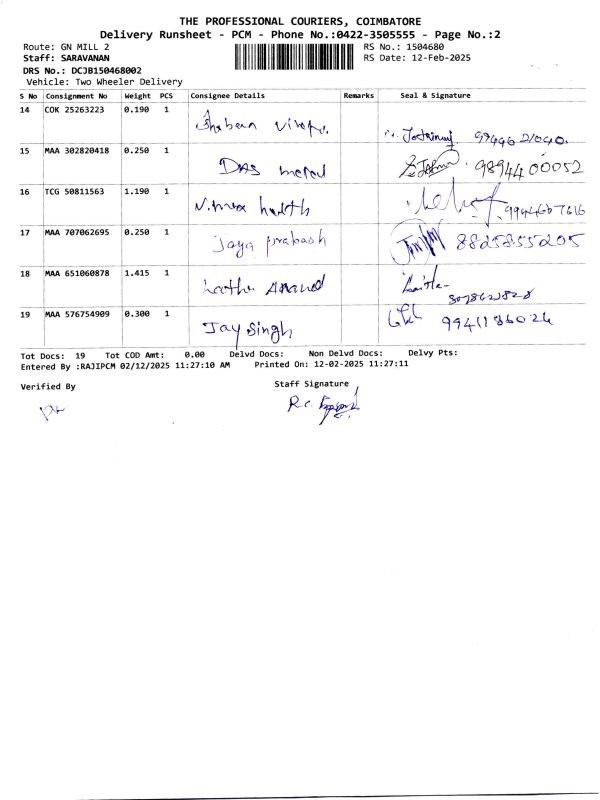 THE PROFESSIONAL COURIERS, COIMBATORE
Delivery Runsheet - PCM - Phone No.:0422-3505555 - Page No.:2
Route: GN MILL 2 RS No.: 1504680
Staff: SARAVANAN RS Date: 12-Feb-2025
DRS No.: DCJB150468002
Vehicle: Two Wheeler Delivery
S No Consignment No Weight PCS Consignee Details Remarks Seal & Signature
14 COK 25263223 0.190 1
15 MAA 302820418 0.250 1 DAS 9894400052
16 TCG 50811563 1.190 1 9944607616
17 MAA 707062695 0.250 1 Jaya prabash 8825855205
18 MAA 651060878 1.415 1 Anand
19 MAA 576754909 0.300 1 Jay Singh 9941136024
Tot Docs: 19 Tot COD Amt: 0.00 Delvd Docs: Non Delvd Docs: Delvy Pts:
Entered By :RAJIPCM 02/12/2025 11:27:10 AM Printed On: 12-02-2025 11:27:11
Verified By Staff Signature
R.C.